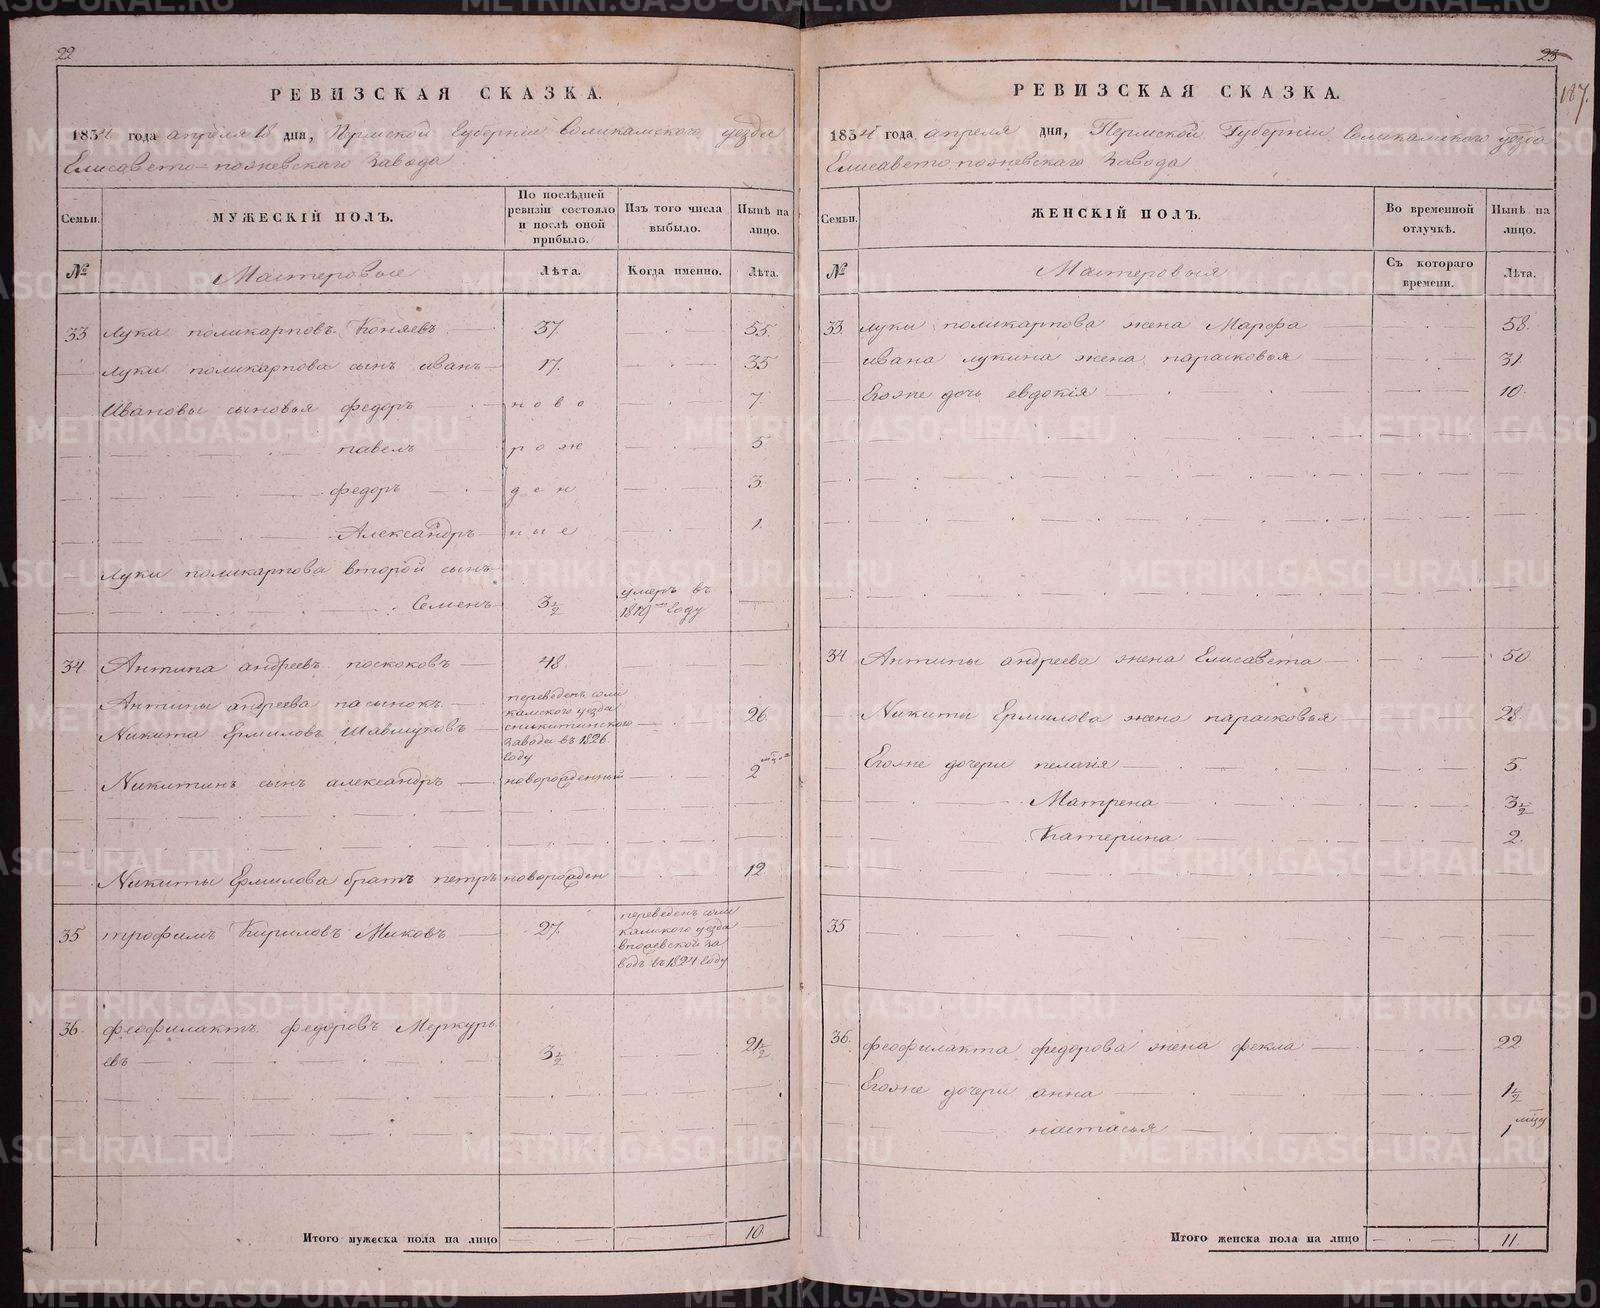 22
РЕВИЗСКАЯ СКАЗКА.
1834 года апреля дня, Пермской Губерніи Соликамского уезда
Елисавето-пожевскаго Завода
Семьи.
МУЖЕСКІЙ ПОЛЪ.
По послѣдней ревизіи состояло и послѣ оной прибыло.
Изъ того числа выбыло.
Нынѣ на лицо.
№
Мастеровые
Лѣта.
Когда именно.
Лѣта.
33 Лука поликарповъ Коняевъ 37. 55.
Луки поликарпова сынъ иванъ 17. 35
Ивановы сыновья федоръ ново 7
павелъ рож 5
федоръ ден 3.
Александръ ные 1.
Луки поликарпова второй сынъ
Семенъ 3½ умеръ въ 1819 Году
34 Антипа андреевъ поскоковъ 48.
Антипы андреева пасынокъ
Никита Ермиловъ Шавшуковъ переведенъ соли
камского уезда
никитинского
завода въ 1826
Году 26.
Никитинъ сынъ александръ новорожденный 2
Никиты Ермилова братъ петръ новорожден 12
35 трофимъ Кириловъ Миковъ 27. переведенъ соли
камского уезда
за
водъ въ 1824 Году
36. феофилактъ федоровъ Меркурь
евъ 3½ 21½
Итого мужеска пола на лицо 10.
23
187.
РЕВИЗСКАЯ СКАЗКА.
1834 года апреля дня, Пермской Губерніи Соликамского уезда
Елисавето пожевскаго Завода
Семьи.
ЖЕНСКІЙ ПОЛЪ.
Во временной отлучкѣ.
Нынѣ на лицо.
№
Мастеровыя
Съ котораго времени.
Лѣта.
33. Луки поликарпова жена Марфа 58.
ивана лукина жена парасковья 31.
Егоже дочь евдокія 10.
34 Антипы андреева жена Елисавета 50
Никиты Ермилова жена парасковья 28.
Егоже дочери пелагія 5.
Матрена 3½
Катерина 2.
35
36. феофилакта федорова жена фекла 22
Егоже дочери анна 1½
настасья 1
Итого женска пола на лицо 11.
METRIKI.GASO-URAL.RU